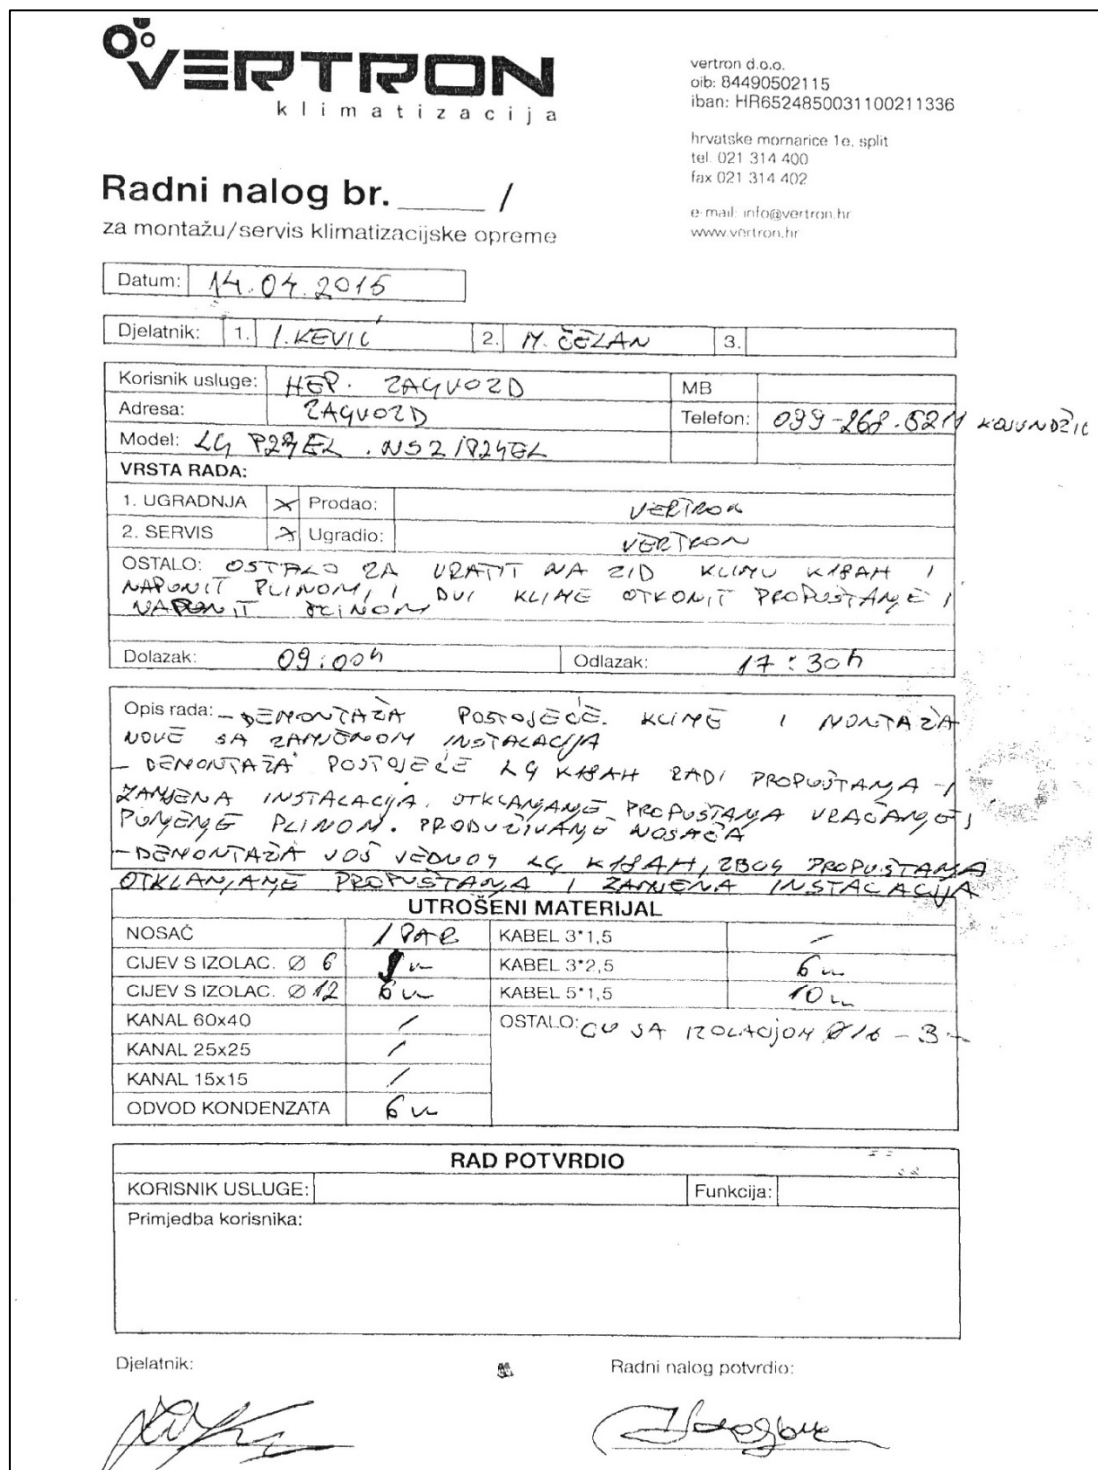 VERTRON
klimatizacija
vertron d.o.o.
oib: 84490502115
iban: HR6524850031100211336
hrvatske mornarice 1e, split
tel. 021 314 400
fax 021 314 402
e-mail: info@vertron.hr
www.vertron.hr
Radni nalog br. _____ /
za montažu/servis klimatizacijske opreme
Datum: 14.04.2015
Djelatnik: 1. I. KEVIĆ 2. M. ČELAN 3.
Korisnik usluge: HEP. ZAGVOZD MB
Adresa: ZAGVOZD Telefon: 099-268. KOJUNDŽIĆ
Model: LG P24EL .NS2/P24EL
VRSTA RADA:
1. UGRADNJA X Prodao: VERTRON
2. SERVIS X Ugradio: VERTRON
OSTALO: OSTALO ZA VRATIT NA ZID KLIMU K18AH I
NAPUNIT PLINOM, I DVI KLIME OTKONIT PROPUŠTANJE I
NAPUNIT PLINOM
Dolazak: 09:00h Odlazak: 17:30h
Opis rada: - DEMONTAŽA POSTOJEĆE KLIME I MONTAŽA
NOVE SA ZAMJENOM INSTALACIJA
- DEMONTAŽA POSTOJEĆE LG K18AH RADI PROPUŠTANJA I
ZAMJENA INSTALACIJA. OTKLANJANJE PROPUŠTANJA VRAĆANJE I
PUNJENJE PLINOM. PRODUŽIVANJE NOSAČA
- DEMONTAŽA JOŠ JEDNOG LG K18AH, ZBOG PROPUŠTANJA
OTKLANJANJE PROPUŠTANJA I ZAMJENA INSTALACIJA
UTROŠENI MATERIJAL
NOSAČ 1 PAR KABEL 3*1,5 /
CIJEV S IZOLAC. Ø 6 m KABEL 3*2,5 6 m
CIJEV S IZOLAC. Ø 12 6 m KABEL 5*1,5 10 m
KANAL 60x40 / OSTALO: CU SA IZOLACIJOM Ø16 - 3 m
KANAL 25x25 /
KANAL 15x15 /
ODVOD KONDENZATA 6 m
RAD POTVRDIO
KORISNIK USLUGE: Funkcija:
Primjedba korisnika:
Djelatnik: Radni nalog potvrdio: